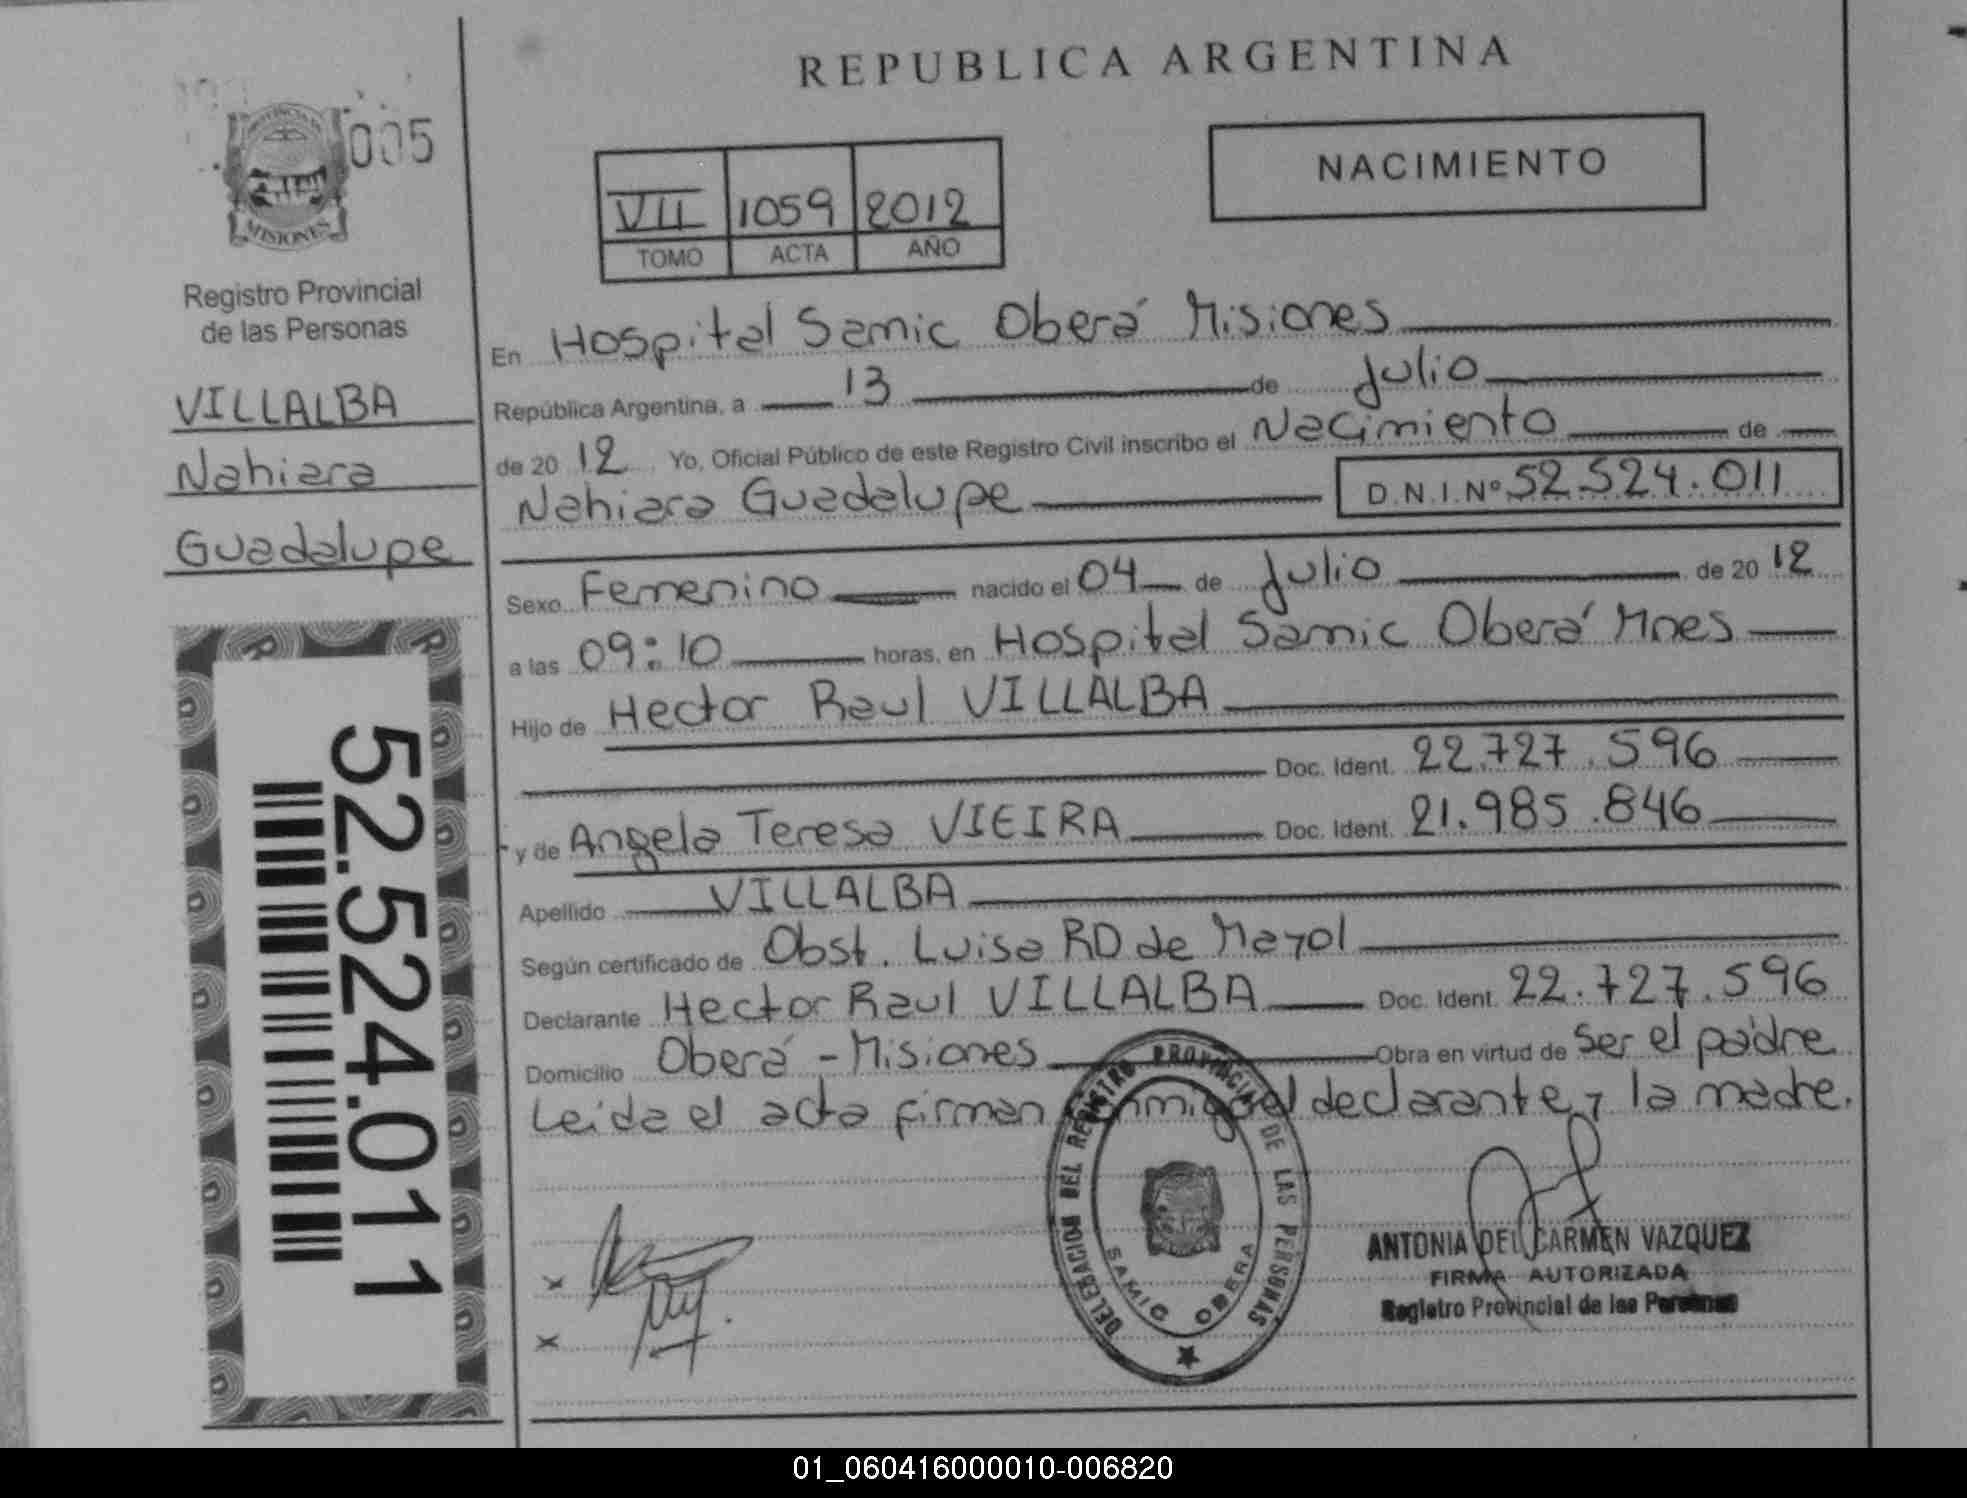 REPUBLICA ARGENTINA
005
MISIONES
Registro Provincial
de las Personas
VILLALBA
Nahiara
Guadalupe
52.524.011
VII 1059 2012
TOMO ACTA AÑO
NACIMIENTO
En Hospital Samic Oberá Misiones
República Argentina, a 13 de Julio
de 2012 Yo, Oficial Público de este Registro Civil inscribo el Nacimiento de
Nahiara Guadalupe D.N.I.Nº 52.524.011
Sexo Femenino nacido el 04 de Julio de 2012
a las 09:10 horas, en Hospital Samic Oberá Mnes
Hijo de Hector Raul VILLALBA
Doc. Ident. 22.727.596
y de Angela Teresa VIEIRA Doc. Ident. 21.985.846
Apellido VILLALBA
Según certificado de Obst. Luisa RD de Mayol
Declarante Hector Raul VILLALBA Doc. Ident. 22.727.596
Domicilio Oberá - Misiones Obra en virtud de Ser el padre
Leida el acta firman conmigo el declarante y la madre.
DELEGACION DEL REGISTRO PROVINCIAL DE LAS PERSONAS
SAMIC OBERA
ANTONIA DEL CARMEN VAZQUEZ
FIRMA AUTORIZADA
Registro Provincial de las Personas
x
x
01_060416000010-006820